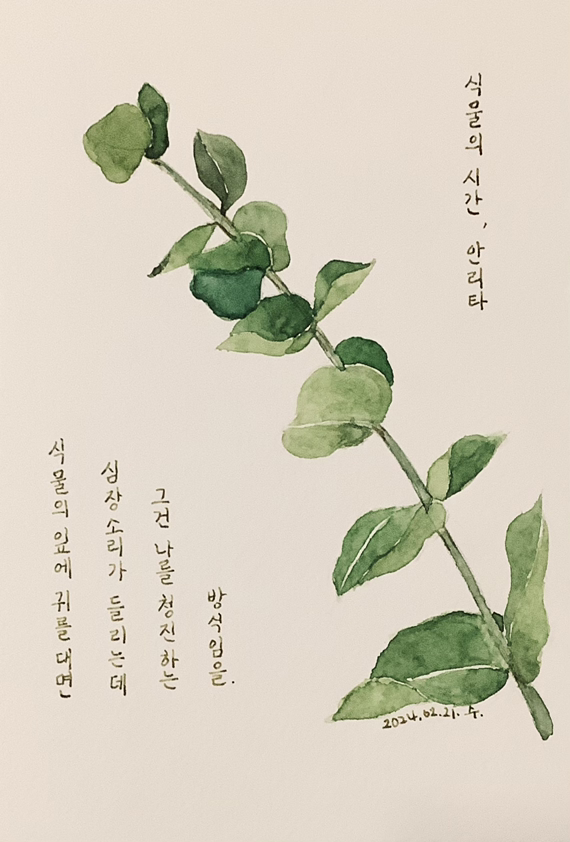 식물의 시간, 안리타
식물의 잎에 귀를 대면
심장 소리가 들리는데
그건 나를 청진하는
방식임을.
2024.02.21. 수.